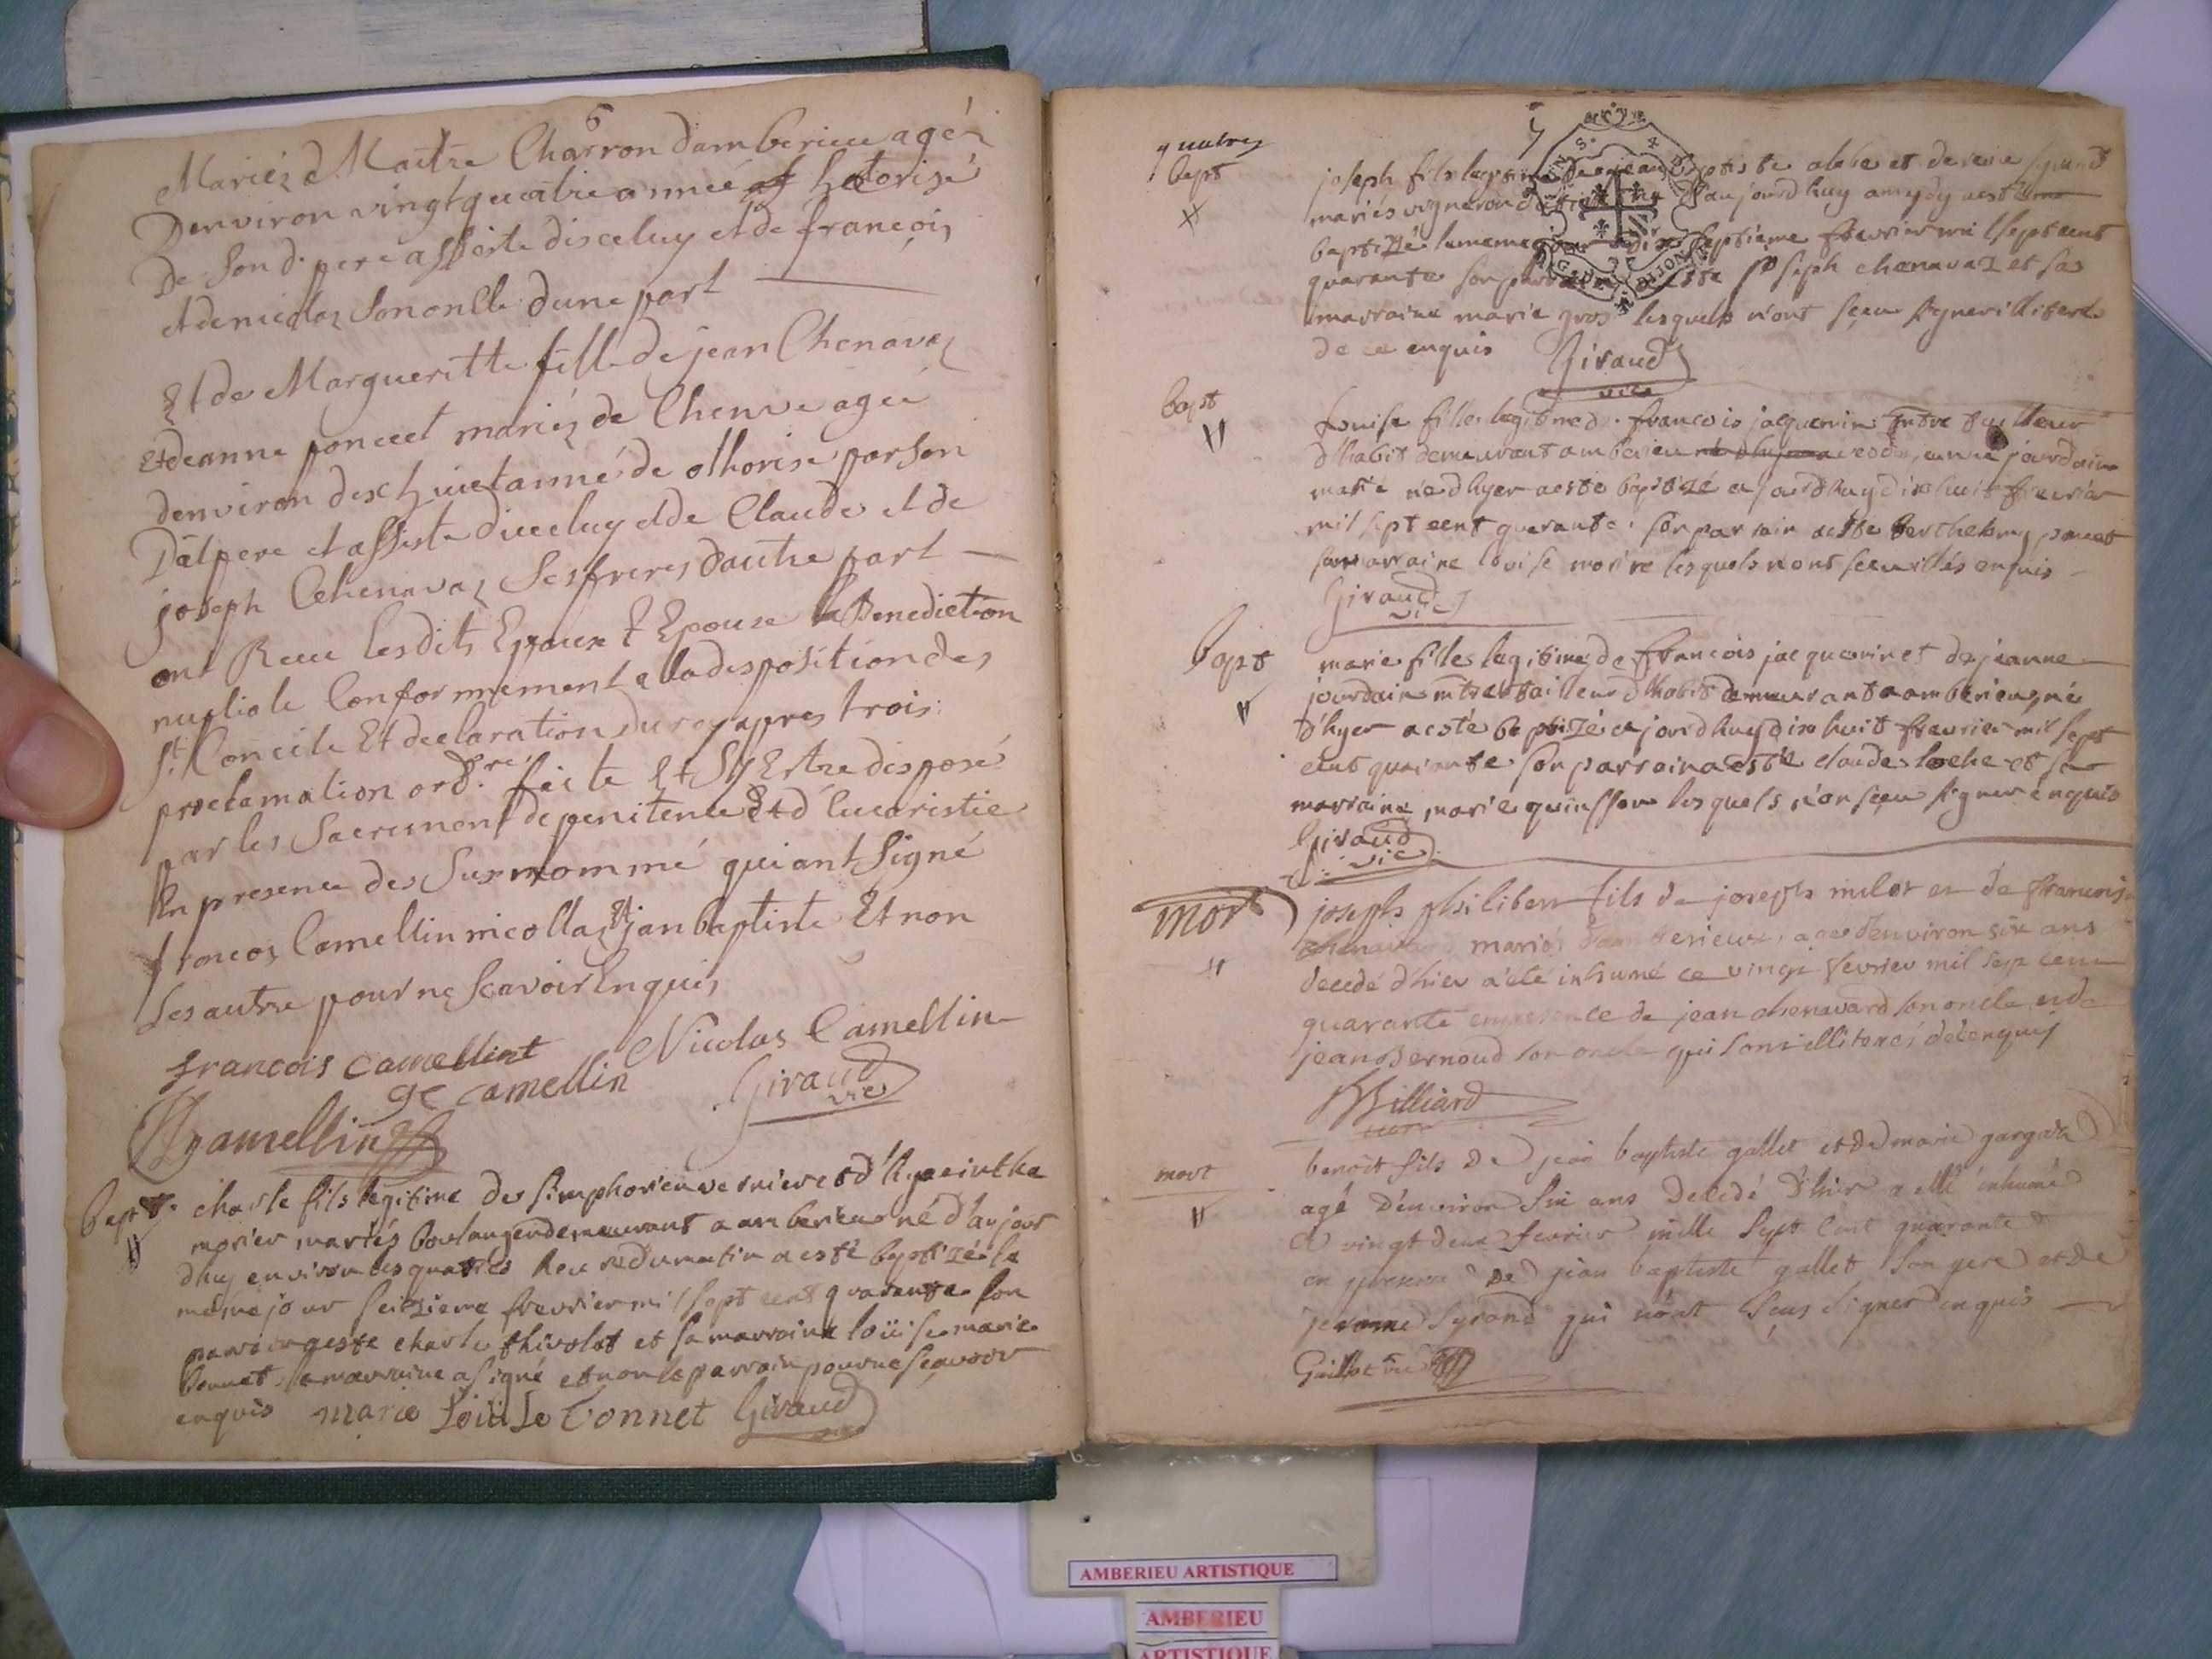 6
Mariéz Maitre Charron damberieu agéz
Denviron vingt quatre année hotorisé
De Son d. pere assiste diceluy et de françois
et de nicolaz Son oncle dune part
Et de Margueritte fille de jean Chenavaz
Et deanne poncet mariéz de Chenve agéé
denviron dex huict année de othorise par Son
Dât pere et assiste diceluy et de Claude et de
joseph Chenavaz Ses freres dautre part
ont Receu lesdits Epoux & Epouze la Benediction
nuptiale Conformement a la disposition des
St. Concile Et declaration du roy apres trois
proclamation ord.re faite Et Sy Estre disposé
par les Sacrement de penitence Et d'Eucaristie
En presence des Surnommé qui ont Signé
francoz Camellin nicollaz Et jan baptiste Et non
les autre pour ne Scavoir Enquis
francois camellint Nicolas Camellin
camellin Giraud vic
camellin
bapt. charle fils legitime de simphorien verniere et d'hyacinthe
morier mariés boulanger demeurant a amberieu né d'aujour
dhuy environ les quatres heure du matin a esté baptizé le
mëme jour seizieme fevrier mil sept cent quarante son
parrain a esté charle thivolet et sa marraine loüise marie
bonnet la marraine a signé et non le parrain pour ne sçavoir
enquis marie Loüise bonnet Giraud
7
quatres
bapt
joseph fils legitime de jean baptiste et de
mariés vigneron né d'aujourdhuy a mydy a esté
baptizé le meme jour dix septieme fevrier mil sept cent
quarante son parrain a esté joseph chenavaz et sa
marraine marie gros lesquels n'ont sçeu signer illiterés
de ce enquis Giraud
vice
bapt
louise fille legitime de francois jacquemin mtre tailleur
d'habit demeurant amberieu et de jeanne jourdain
marié né dhyer a esté baptizé ce jourdhuy dix huit fevrier
mil sept cent quarante. son parrain a esté berthelemy poncet
sa marraine lovise morire lesquels n'ont sceu illés enquis
Giraud
vic
bapt
marie fille legitime de francois jacquemin et de jeanne
jourdain mtre tailleur d'habit demeurant a amberieu, né
d'hyer a esté baptizé ce jourdhuy dix huit fevrier mil sept
cent quarante son parrain a esté claude loche et sa
marraine marie quinsson lesquels n'on sceu signer enquis
Giraud
vic
mort
joseph philibert fils de joseph milet et de francoise
chenavard mariés damberieux, agé d'environ six ans
decedé d'hier a été inhumé ce vingt fevrier mil sept cent
quarante en presence de jean chenavard son oncle et de
jean Bernoud son oncle qui sont illiterés de ce enquis
Billiard
curé
mort
benoit fils de jean baptiste gallet et de marie
agé d'environ six ans decedé d'hier a esté inhumé
ce vingt deux fevrier mille sept cent quarante
en presence de jean baptiste gallet son pere et de
jerome qui n'ont sçus signer enquis
Guillot vic
AMBERIEU ARTISTIQUE
AMBERIEU
ARTISTIQUE